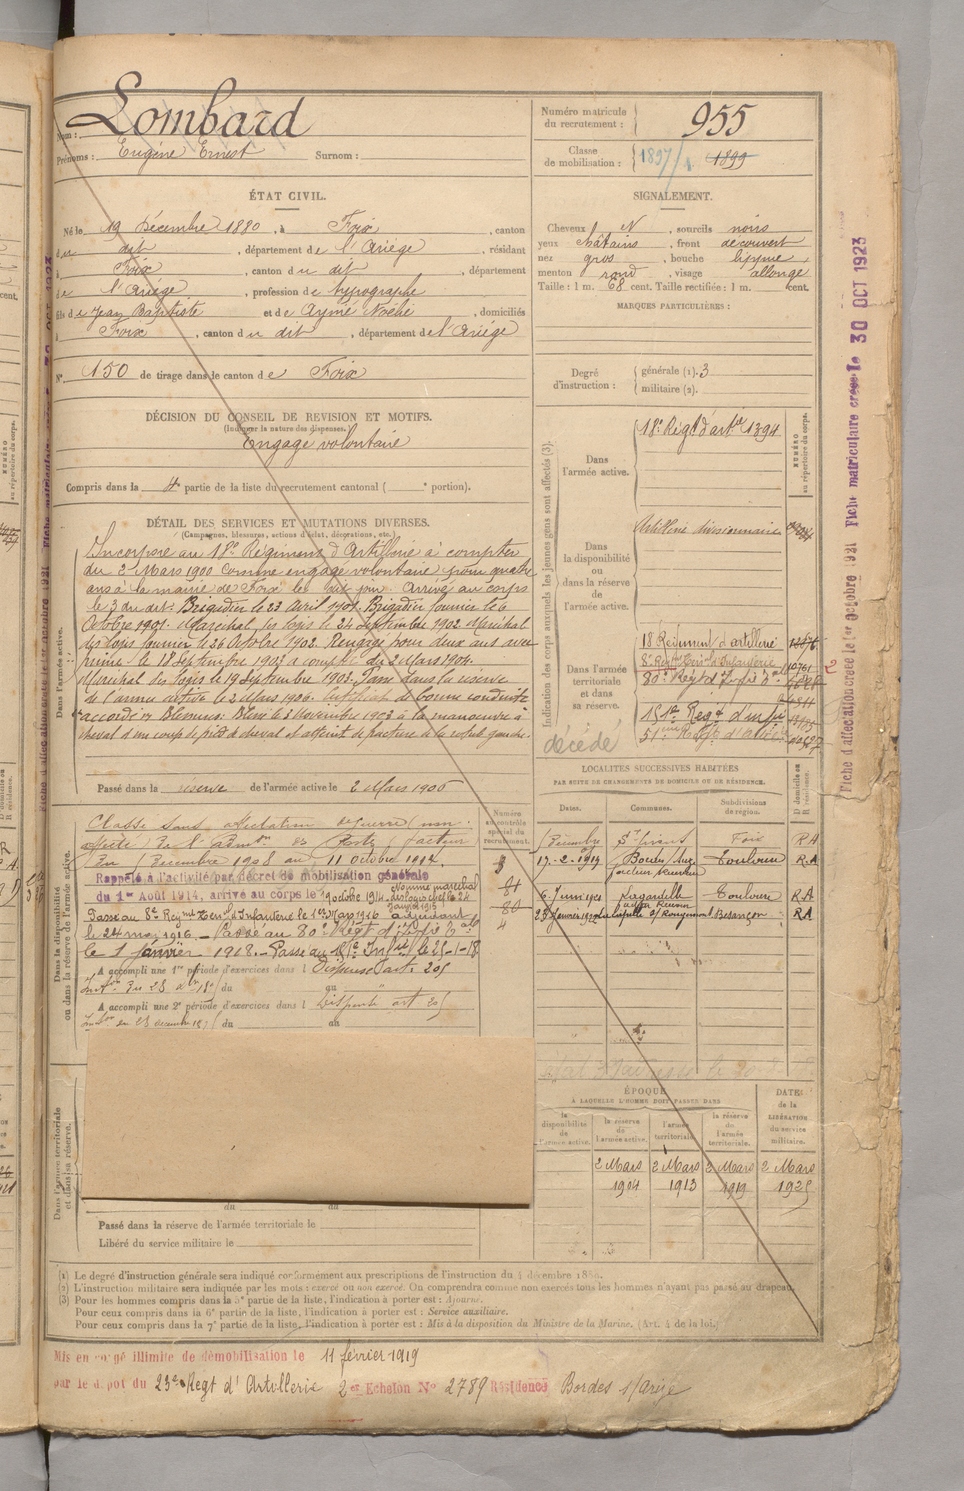 Nom : Lombard
Prénoms : Eugène Ernest Surnom :
Numéro matricule du recrutement : 955
Classe de mobilisation : 1897/1. 1899
ÉTAT CIVIL.
Né le 19 Décembre 1880, à Foix, canton
du dit, département de l'Ariège, résidant
à Foix, canton du dit, département
de l'Ariège, profession de typographe
fils de Jean Baptiste et de Aymé Noélie, domiciliés
à Foix, canton du dit, département de l'Ariége
N° 150 de tirage dans le canton de Foix
SIGNALEMENT.
Cheveux N, sourcils noirs
yeux châtains, front découvert
nez gros, bouche moyenne,
menton rond, visage allongé
Taille : 1 m. 68 cent. Taille rectifiée : 1 m. cent.
MARQUES PARTICULIÈRES :
Degré d'instruction : générale (1). 3
militaire (2).
DÉCISION DU CONSEIL DE REVISION ET MOTIFS.
(Indiquer la nature des dispenses.)
Engagé volontaire
Compris dans la 4e partie de la liste du recrutement cantonal ( e portion).
DÉTAIL DES SERVICES ET MUTATIONS DIVERSES.
(Campagnes, blessures, actions d'éclat, décorations, etc.)
Dans l'armée active.
Incorporé au 18e Régiment d'Artillerie à compter
du 2 Mars 1900 Comme engagé volontaire pour quatre
ans à la mairie de Foix le dit jour Arrivé au corps
le 3 du dit. Brigadier le 23 Avril 1901. Brigadier fourrier le 6
Octobre 1901. Maréchal des logis le 21 Septembre 1902 Maréchal
des logis fourrier le 26 Octobre 1902. Rengagé pour deux ans avec
prime le 18 Septembre 1903 à compter du 2 Mars 1904.
Maréchal des logis le 19 Septembre 1903. Passé dans la réserve
de l'armée active le 2 Mars 1906. Certificat de bonne conduite
accordé. Blessures: Blessé le 3 Novembre 1903 à la manoeuvre à
cheval d'un coup de pied de cheval et atteint de fracture à la côte gauche.
Passé dans la réserve de l'armée active le 2 Mars 1900
Indication des corps auxquels les jeunes gens sont affectés (3).
NUMÉRO au répertoire du corps.
Dans l'armée active.
18e Régt d'artie 1394
Dans la disponibilité ou dans la réserve de l'armée active.
Artillerie divisionnaire
Dans l'armée territoriale et dans sa réserve.
18 Régiment d'artillerie
8e Régt Terrial d'Infanterie
80e Régt d'Infie
151e Regt d'infie
décédé
LOCALITÉS SUCCESSIVES HABITÉES
PAR SUITE DE CHANGEMENTS DE DOMICILE OU DE RÉSIDENCE.
Dates. Communes. Subdivisions de région. D domicile ou R résidence.
Décembre St Lizier Foix RA
17-2-1919 Bordes s/Arize Toulouse R.A
Lagardelle Toulouse RA
Besançon RA
Dans la disponibilité ou dans la réserve de l'armée active.
Numéro au contrôle spécial du recrutement.
Classé sans affectation de guerre (non
affecté) De l'Admton des Postes facteur
Du 1 Décembre 1908 au 11 octobre 1914
Rappelé à l'activité par décret de mobilisation générale
du 1er Août 1914, arrivé au corps le 9 octobre 1914
Passé au 8e Regmt Terrial d'Infanterie le 1er Mars 1916 adjudant
le 24 mai 1916. Passé au 80e Régt d'Infie
le 1 janvier 1918. Passé au 151e Infie le 25-1-18
A accompli une 1re période d'exercices dans l Dispensé art. 205
du au
A accompli une 2e période d'exercices dans l Dispensé art 205
du au
ÉPOQUE
À LAQUELLE L'HOMME DOIT PASSER DANS
DATE de la LIBÉRATION du service militaire.
la disponibilité de l'armée active. la réserve de l'armée active. l'armée territoriale. la réserve de l'armée territoriale.
2 Mars 1904 2 Mars 1913 2 Mars 1919 2 Mars 1925
Dans l'armée territoriale et dans sa réserve.
du au
Passé dans la réserve de l'armée territoriale le
Libéré du service militaire le
(1) Le degré d'instruction générale sera indiqué conformément aux prescriptions de l'instruction du 4 décembre 1889.
(2) L'instruction militaire sera indiquée par les mots : exercé ou non exercé. On comprendra comme non exercés tous les hommes n'ayant pas passé au drapeau.
(3) Pour les hommes compris dans la 5e partie de la liste, l'indication à porter est : Ajourné.
Pour ceux compris dans la 6e partie de la liste, l'indication à porter est : Service auxiliaire.
Pour ceux compris dans la 7e partie de la liste, l'indication à porter est : Mis à la disposition du Ministre de la Marine. (Art. 4 de la loi.)
Mis en congé illimité de démobilisation le 11 février 1919
par le dépôt du 23e Régt d'Artillerie 2e Echelon No 2789 Résidence Bordes s/Arize
Fiche d'affectation créée le 1er Octobre 1921 Fiche matriculaire créée le 30 OCT 1923